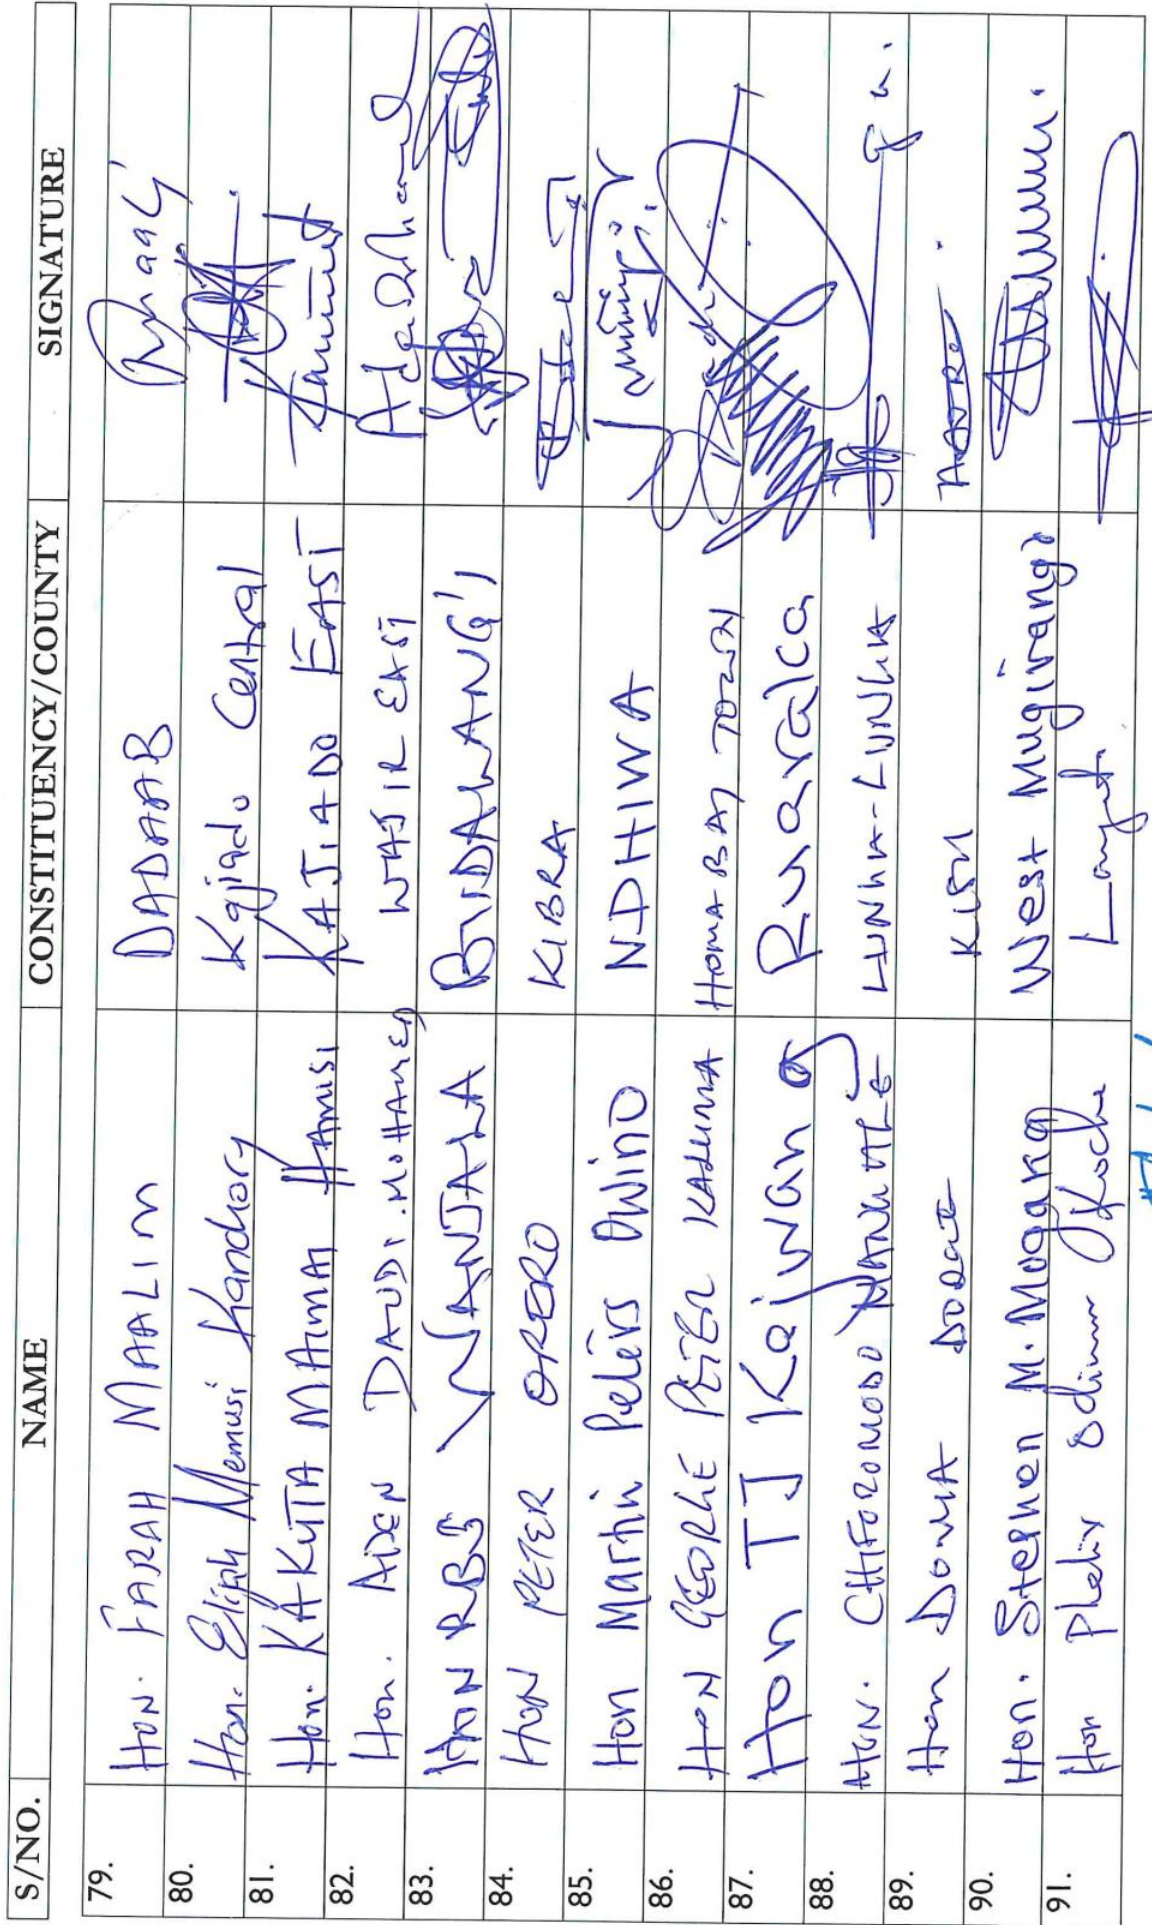 S/NO. NAME CONSTITUENCY/COUNTY SIGNATURE
79. HON. FARAH MAALIM DADAAB
80. Hon. Elijah Memusi Kanchory Kajiado Central
81. Hon. KAKUTA MAIMAI HAMISI KAJIADO EAST
82. Hon. ADEN DAUD. MOHAMED WAJIR EAST
83. HON RBS WANJALA BUDALANG'I
84. HON PETER ORERO KIBRA
85. Hon Martin Peters Owino NDHIWA
86. HON GEORGE PETER KALUMA HOMA BAY TOWN
87. Hon TJ Kajwang Ruaraka
88. HON. CHIFOROMODO MANGALE LUNGA-LUNGA
89. Hon DONYA DORICE KISII
90. Hon. Stephen M. Mogaka West Mugirango
91. Hon Phelix Odiwuor Langata